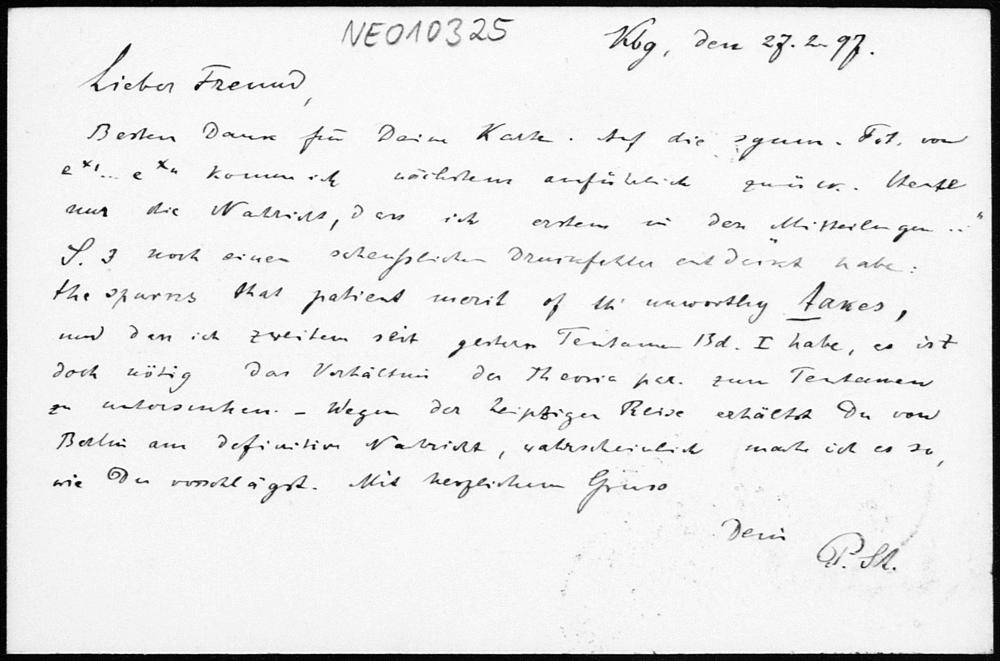 NEO10325
Kbg, den 27.2.97.
Lieber Freund,
Besten Dank für Deine Karte. Auf die symm. Fct. von
e^x1 ... e^xn komme ich nächstens ausführlich zurück. Heute
nur die Nachricht, dass ich erstens in den Mitteilungen ..."
S. 3 noch einen scheusslichen Druckfehler entdeckt habe:
the spurns that patient merit of th' unworthy takes,
und dass ich zweitens seit gestern Tentamen Bd. I habe, es ist
doch nötig das Verhältnis der Theoria par. zum Tentamen
zu untersuchen. – Wegen der Leipziger Reise erhältst Du von
Berlin aus definitive Nachricht, wahrscheinlich mache ich es so,
wie Du vorschlägst. Mit herzlichem Gruss
Dein
P. St.